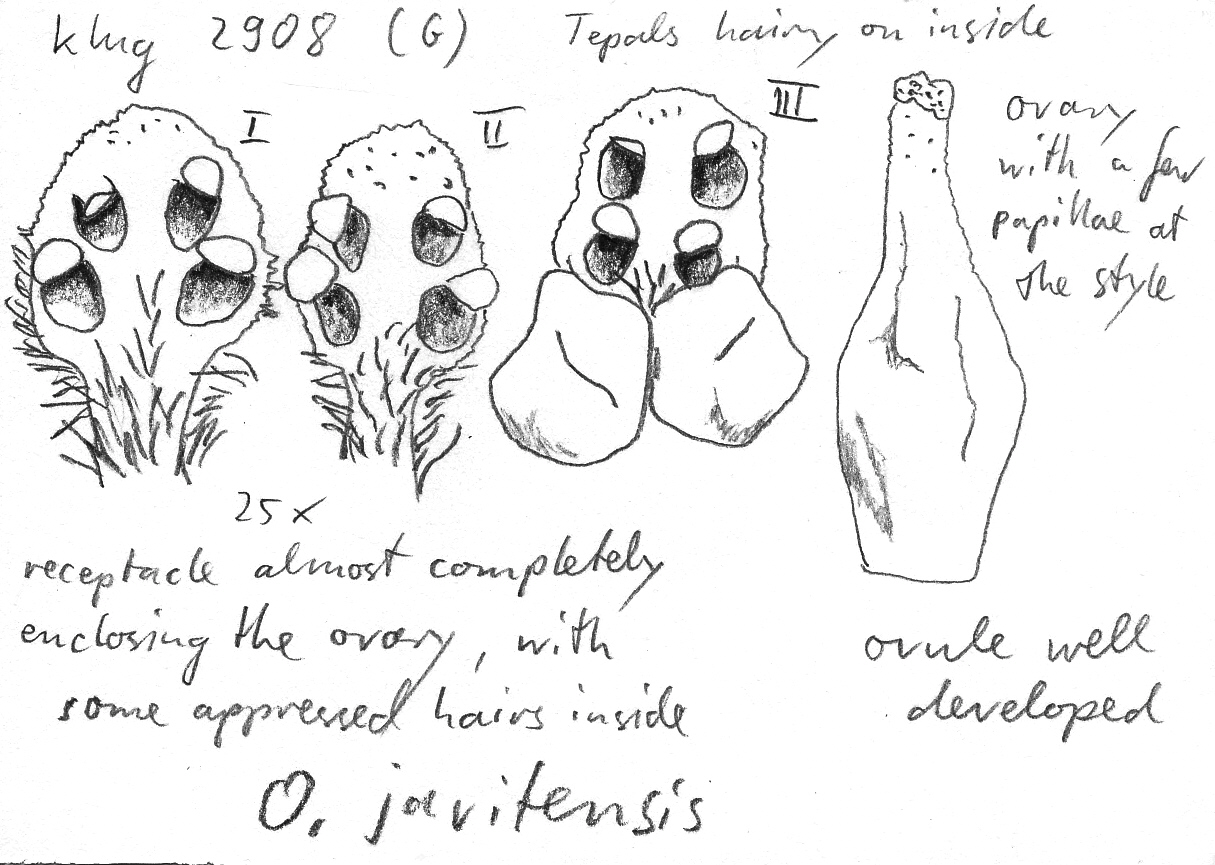 Klug 2908 (G)
Tepals hairy on inside
I
II
III
ovary
with a few
papillae at
the style
25 x
receptacle almost completely
enclosing the ovary, with
some appressed hairs inside
ovule well
developed
O. javitensis